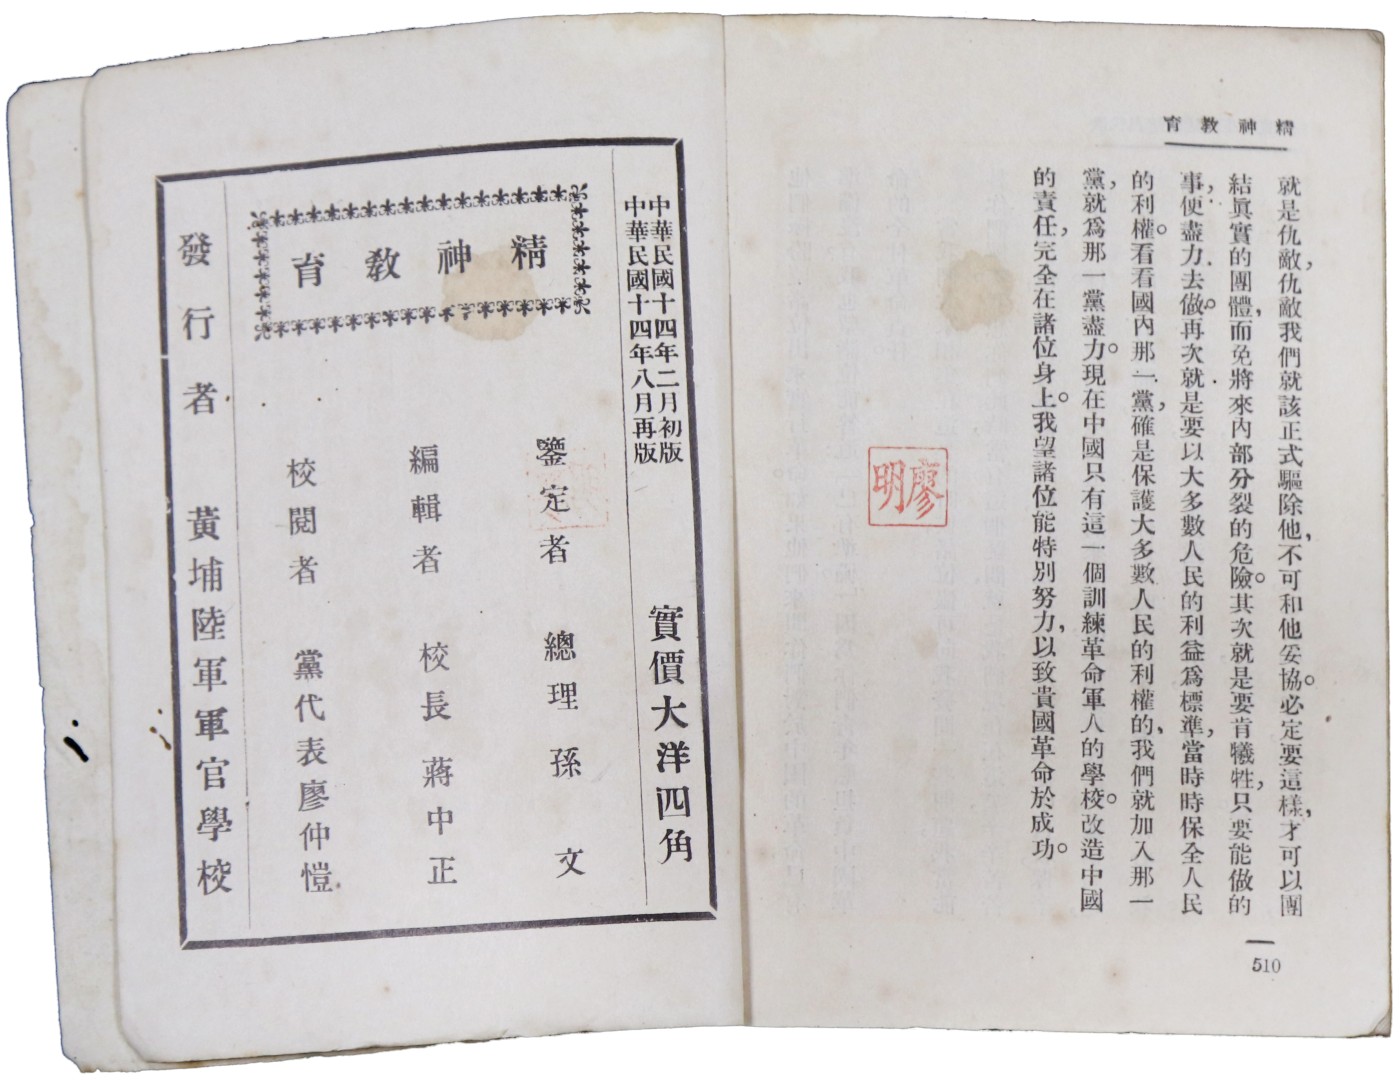 精神教育
就是仇敵,仇敵我們就該正式驅除他,不可和他妥協。必定要這樣,才可以團
結眞實的團體,而免將來內部分裂的危險。其次就是要肯犧牲,只要能做的
事,便盡力去做。再次就是要以大多數人民的利益爲標準,當時時保全人民
的利權。看看國內那一黨,確是保護大多數人民的利權的,我們就加入那一
黨,就爲那一黨盡力。現在中國只有這一個訓練革命軍人的學校。改造中國
的責任,完全在諸位身上。我望諸位能特別努力,以致貴國革命於成功。
510
廖明
中華民國十四年二月初版
中華民國十四年八月再版
實價大洋四角
精神教育
鑒定者 總理孫文
編輯者 校長蔣中正
校閱者 黨代表廖仲愷
發行者 黃埔陸軍軍官學校